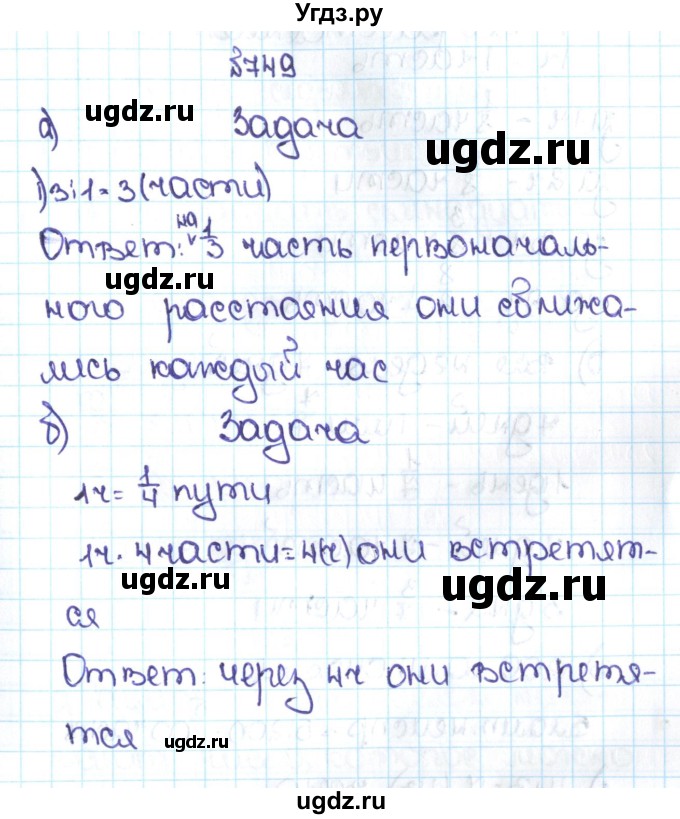 Угдз.ру
№749
ugdz.ru
а) Задача
ugdz.ru
1) 3:1=3 (части)
Ответ: на 1/3 часть первоначаль-
ugdz.ru
ного расстояния они сближа-
лись каждый час
б) Задача
1ч = 1/4 пути
1ч · 4 части = 4(ч) они встретят-
ugdz.ru
ugdz.ru
ся
Ответ: через 4ч они встретя-
тся
ugdz.ru
ugdz.ru